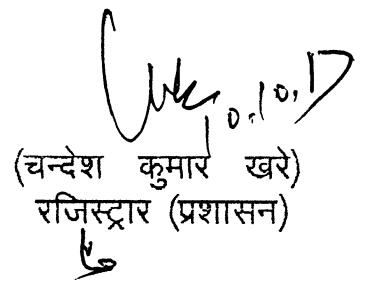 10.10.17
(चन्देश कुमार खरे)
रजिस्ट्रार (प्रशासन)